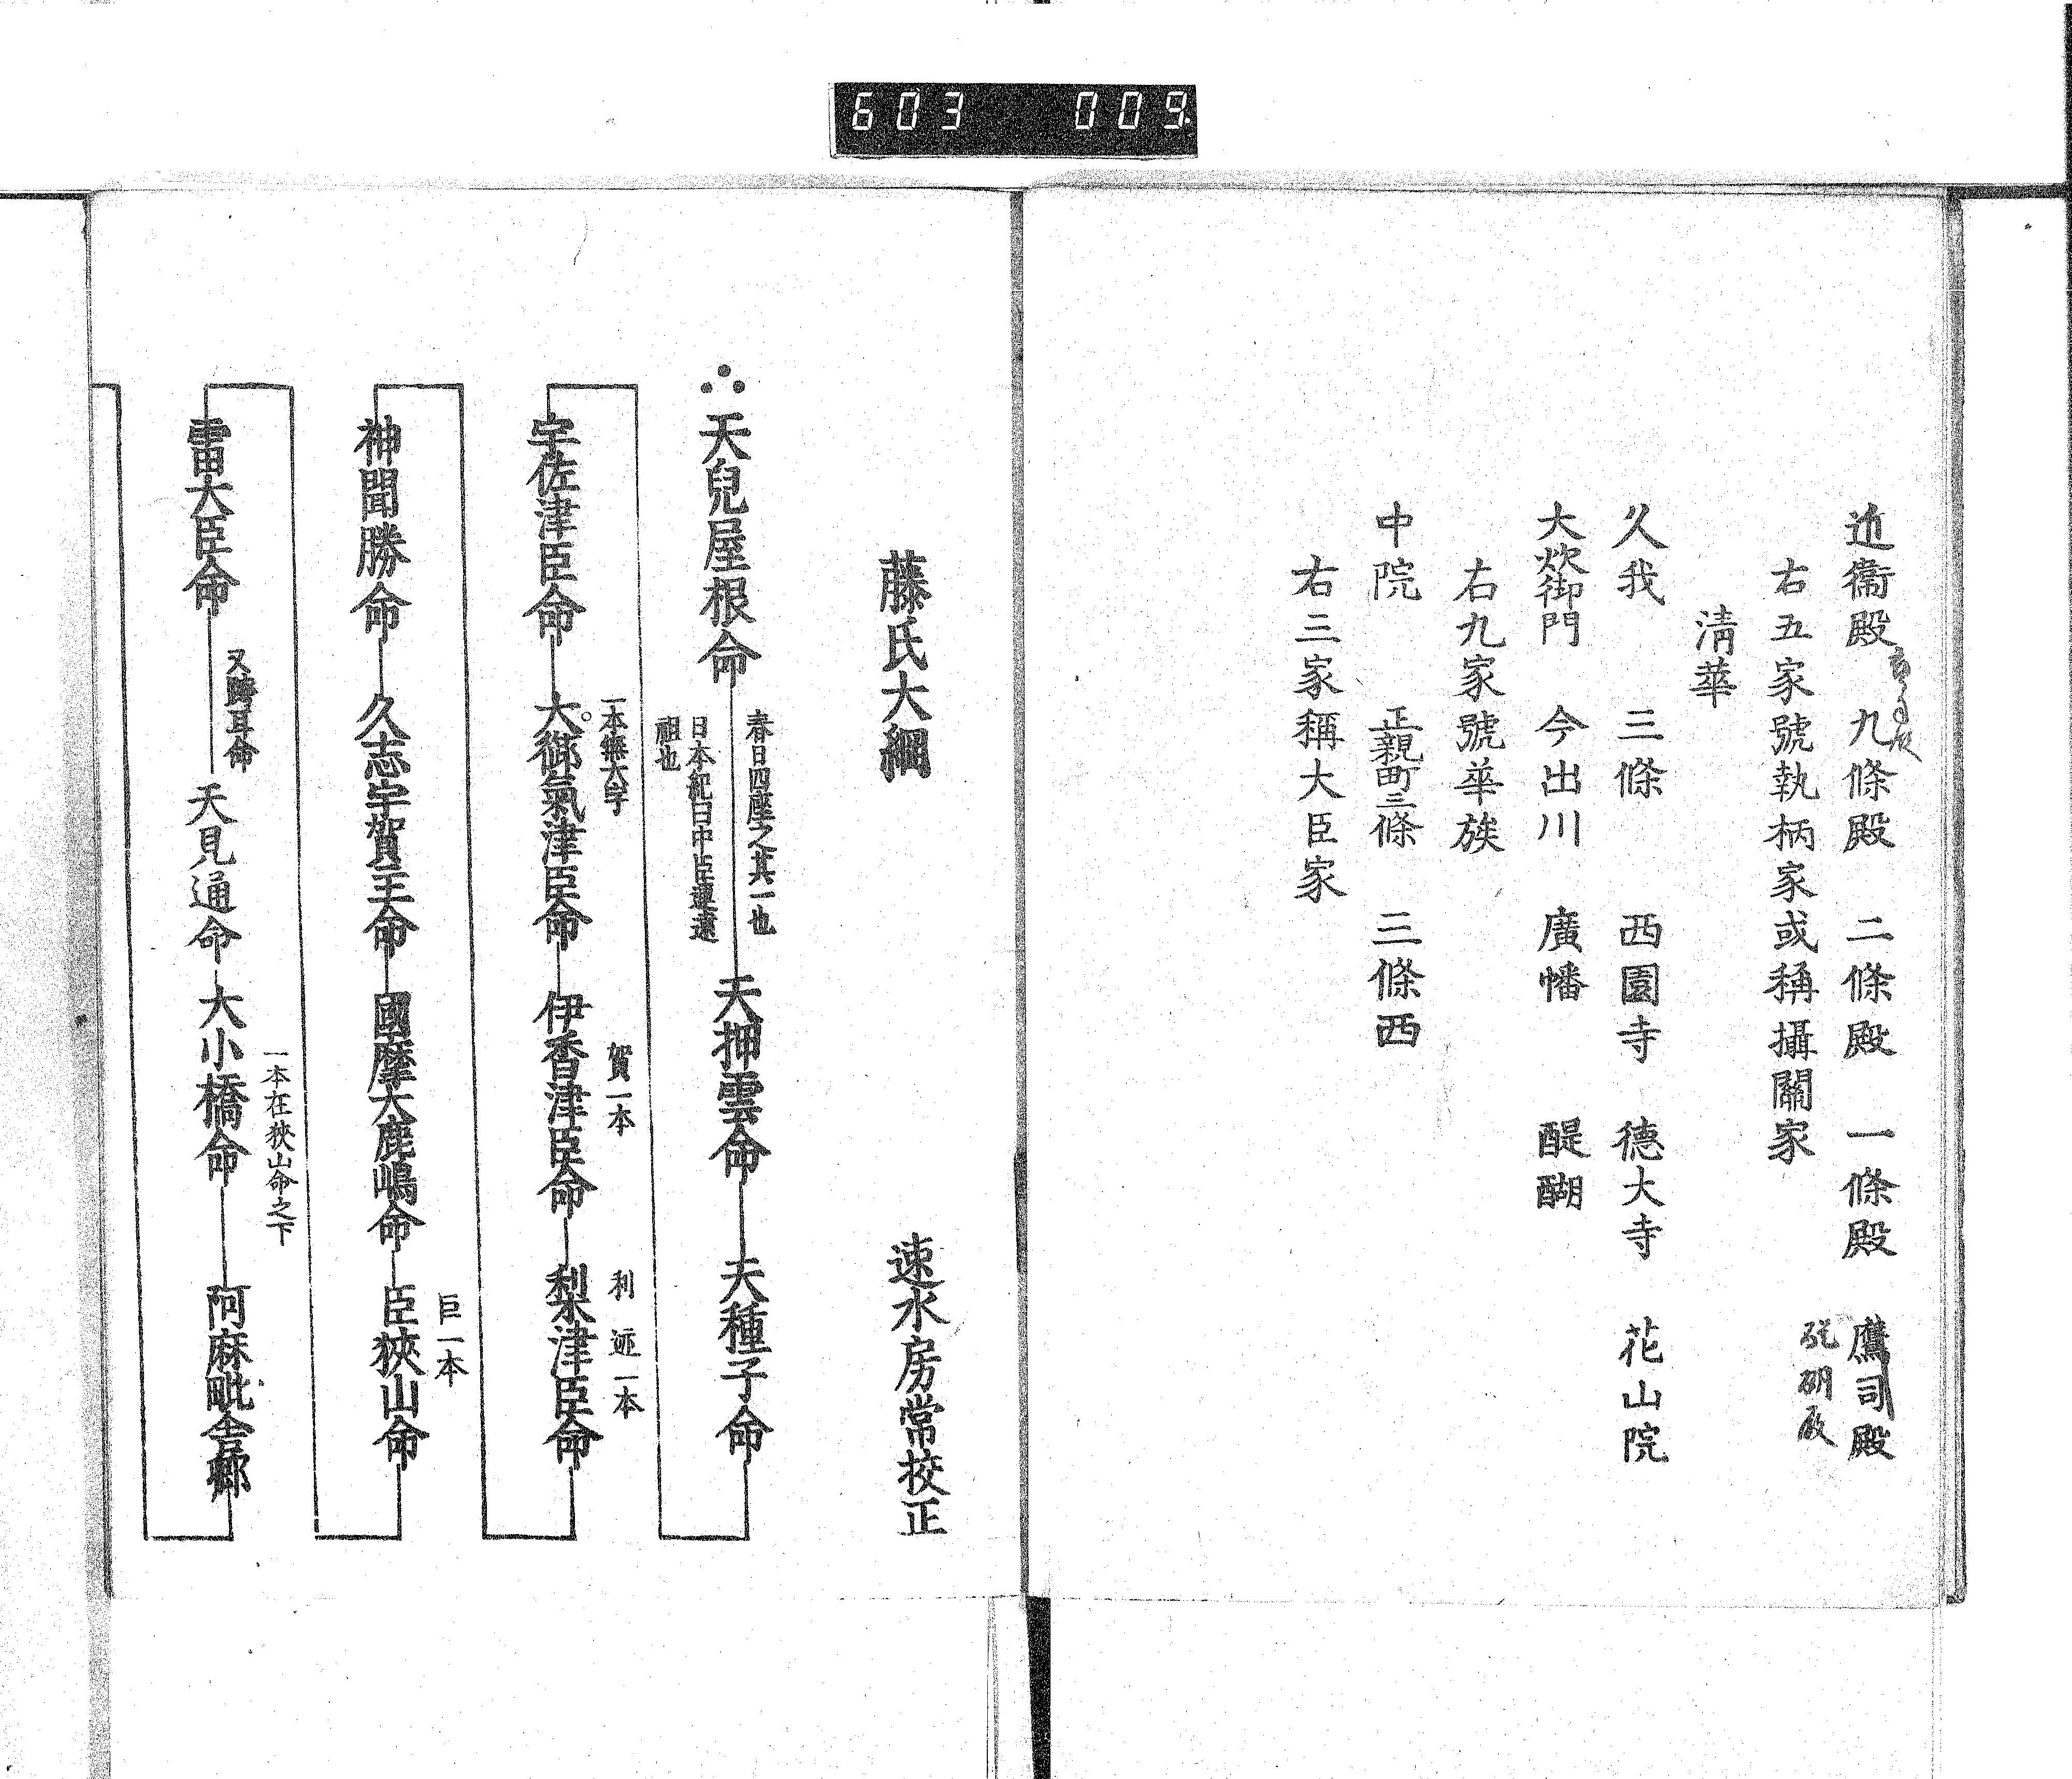 603 009
近衞殿 九條殿 二條殿 一條殿 鷹司殿
右五家號執柄家或稱攝關家
清華
久我 三條 西園寺 德大寺 花山院
大炊御門 今出川 廣幡 醍醐
右九家號華族
中院 正親町三條 三條西
右三家稱大臣家
藤氏大綱 速水房常挍正
天兒屋根命 天押雲命 天種子命
春日四座之其一也
日本紀曰中臣連遠
祖也
宇佐津臣命 大御氣津臣命 伊香津臣命 梨津臣命
一本無大字
賀一本
利 迹一本
神聞勝命 久志宇賀主命 國摩大鹿嶋命 臣狹山命
巨一本
雷大臣命 天見通命 大小橋命 阿麻毗舍卿
又跨耳命
一本在狹山命之下